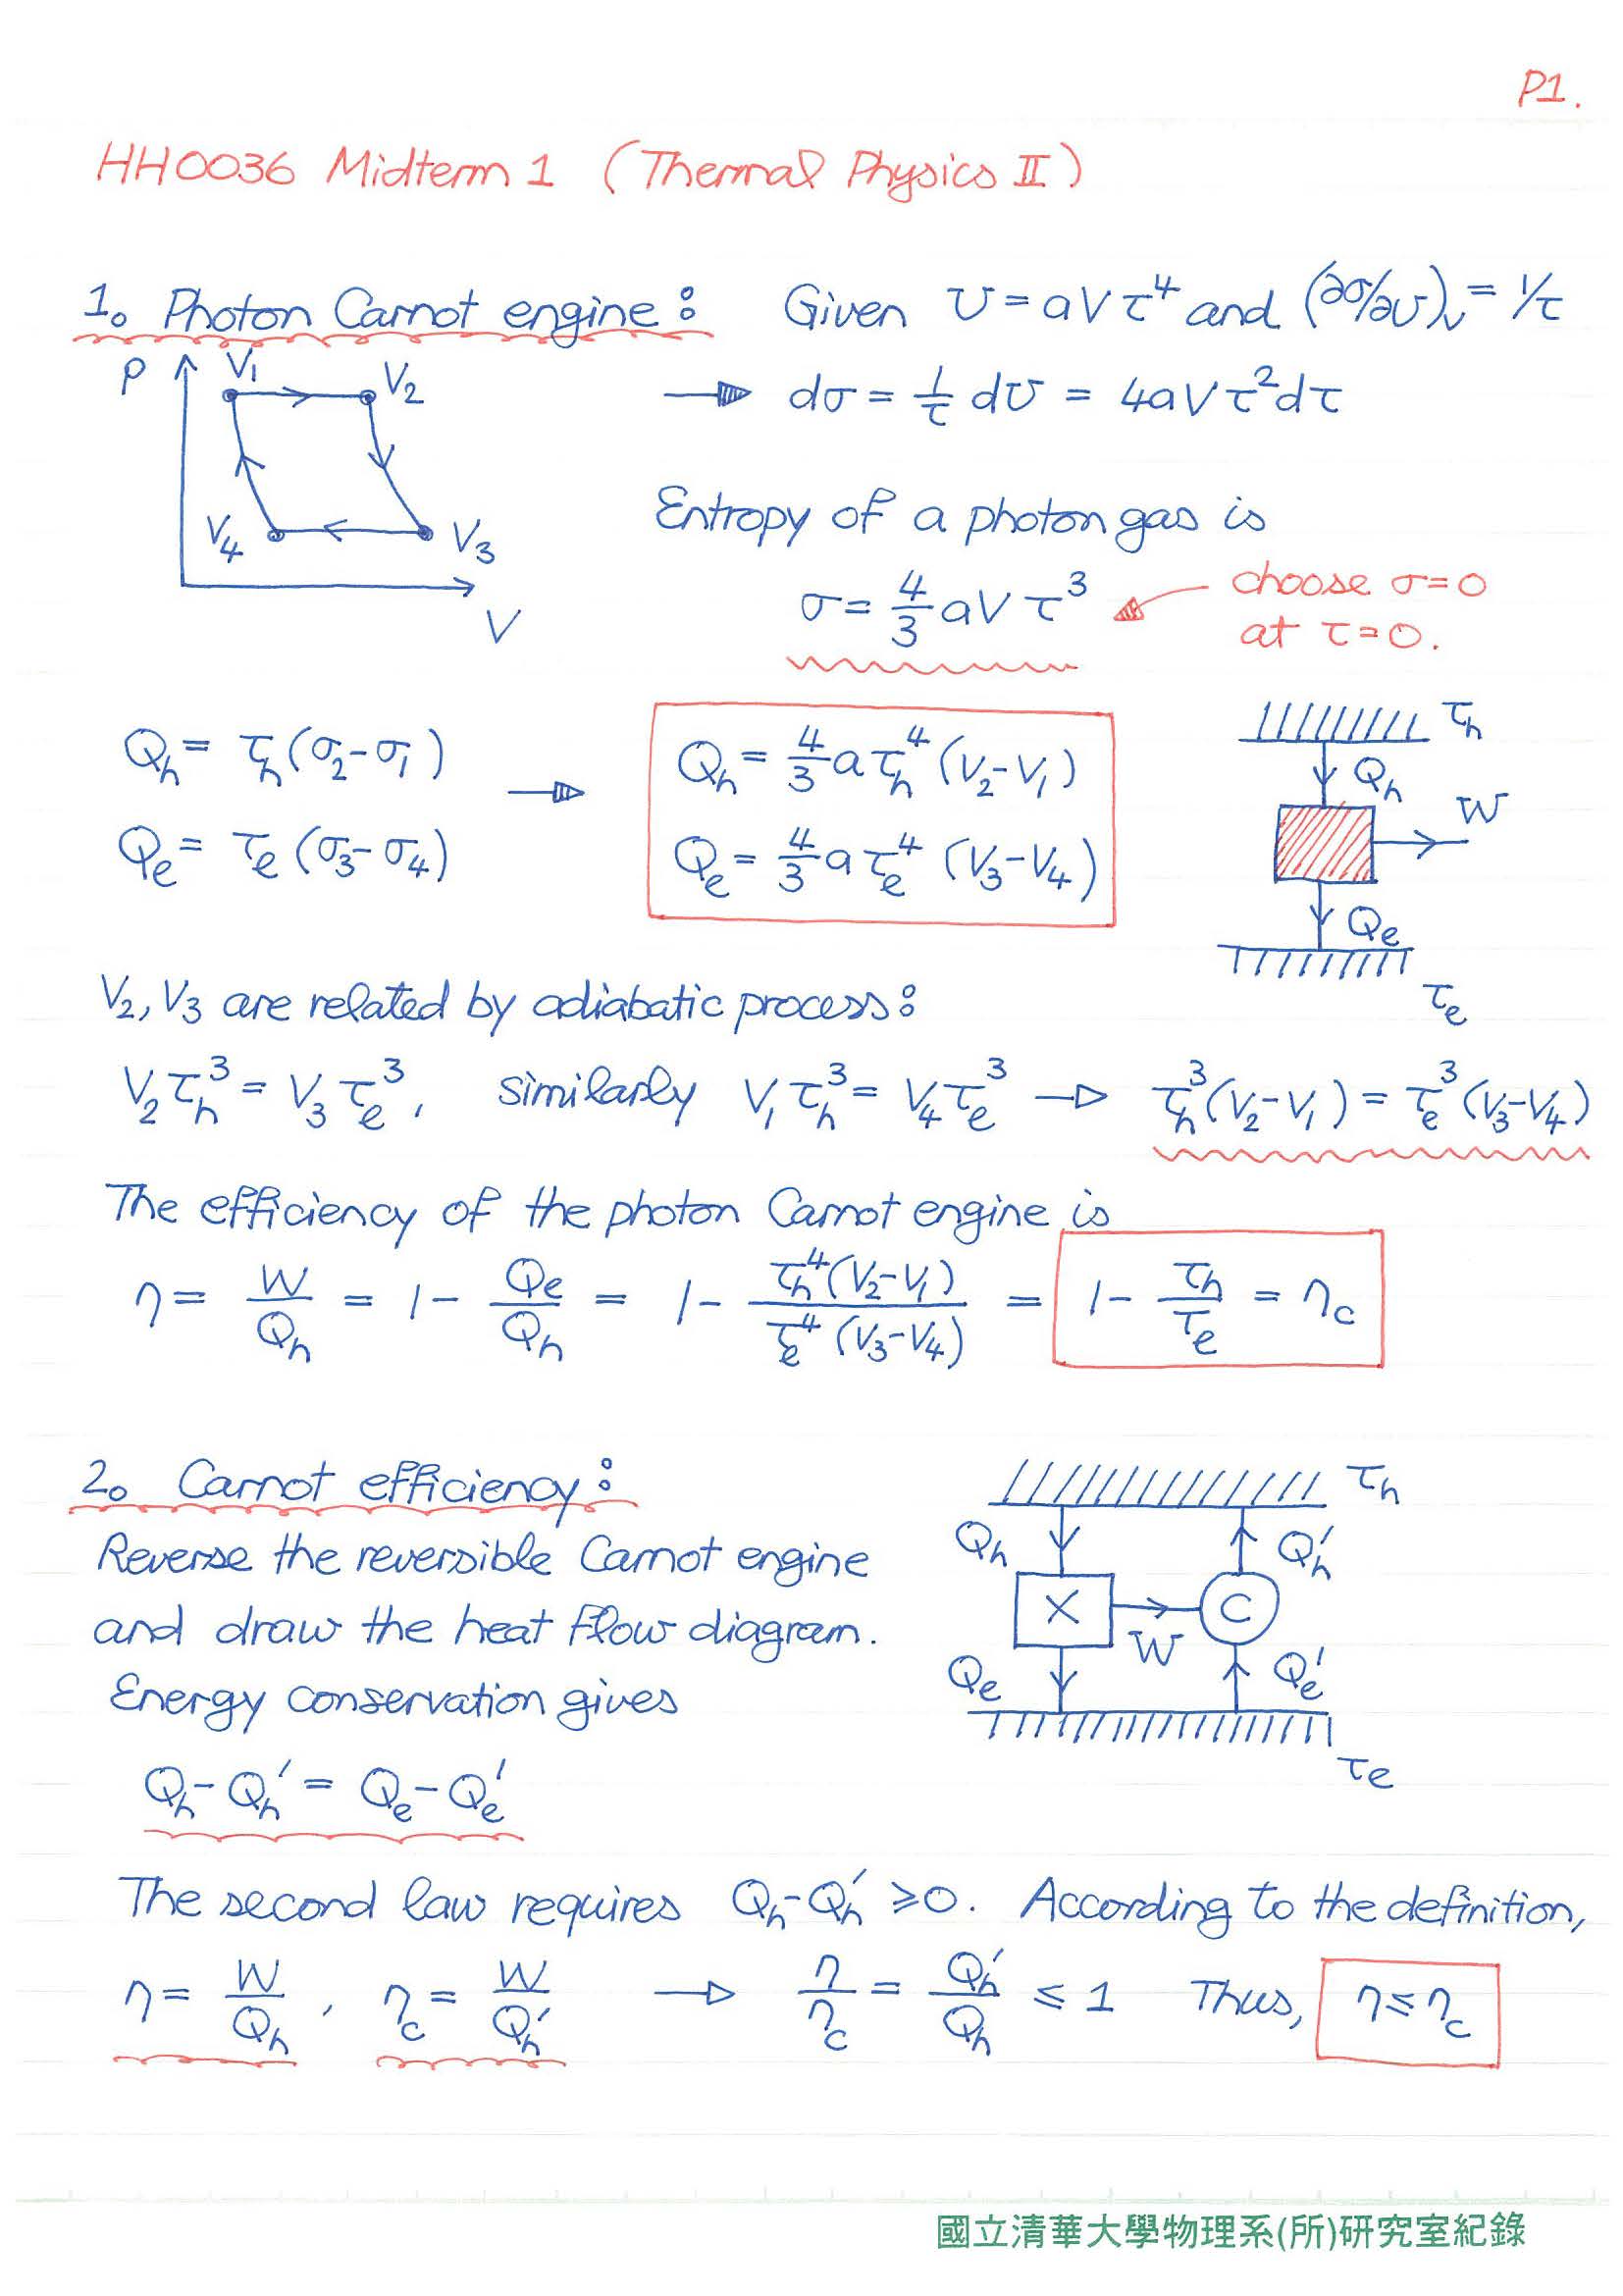 P1.
HH0036 Midterm 1 (Thermal Physics II)
1. Photon Carnot engine: Given U = aVτ⁴ and (∂σ/∂U)_V = 1/τ
P V₁ V₂ V₄ V₃ V
→ dσ = 1/τ dU = 4aVτ²dτ
Entropy of a photon gas is
σ = 4/3 aVτ³
choose σ=0
at τ=0.
Q_h = τ_h(σ₂-σ₁) → Q_h = 4/3 aτ_h⁴ (V₂-V₁)
Q_e = τ_e(σ₃-σ₄) Q_e = 4/3 aτ_e⁴ (V₃-V₄)
τ_h
Q_h
W
Q_e
τ_e
V₂, V₃ are related by adiabatic process:
V₂τ_h³ = V₃τ_e³, similarly V₁τ_h³ = V₄τ_e³ → τ_h³(V₂-V₁) = τ_e³(V₃-V₄)
The efficiency of the photon Carnot engine is
η = W/Q_h = 1 - Q_e/Q_h = 1 - τ_h⁴(V₂-V₁)/τ_e⁴(V₃-V₄) = 1 - τ_h/τ_e = η_c
2. Carnot efficiency:
Reverse the reversible Carnot engine
and draw the heat flow diagram.
Energy conservation gives
Q_h - Q_h' = Q_e - Q_e'
τ_h
Q_h Q_h'
X W C
Q_e Q_e'
τ_e
The second law requires Q_h - Q_h' ≥ 0. According to the definition,
η = W/Q_h, η_c = W/Q_h' → η/η_c = Q_h'/Q_h ≤ 1 Thus, η ≤ η_c
國立清華大學物理系(所)研究室紀錄